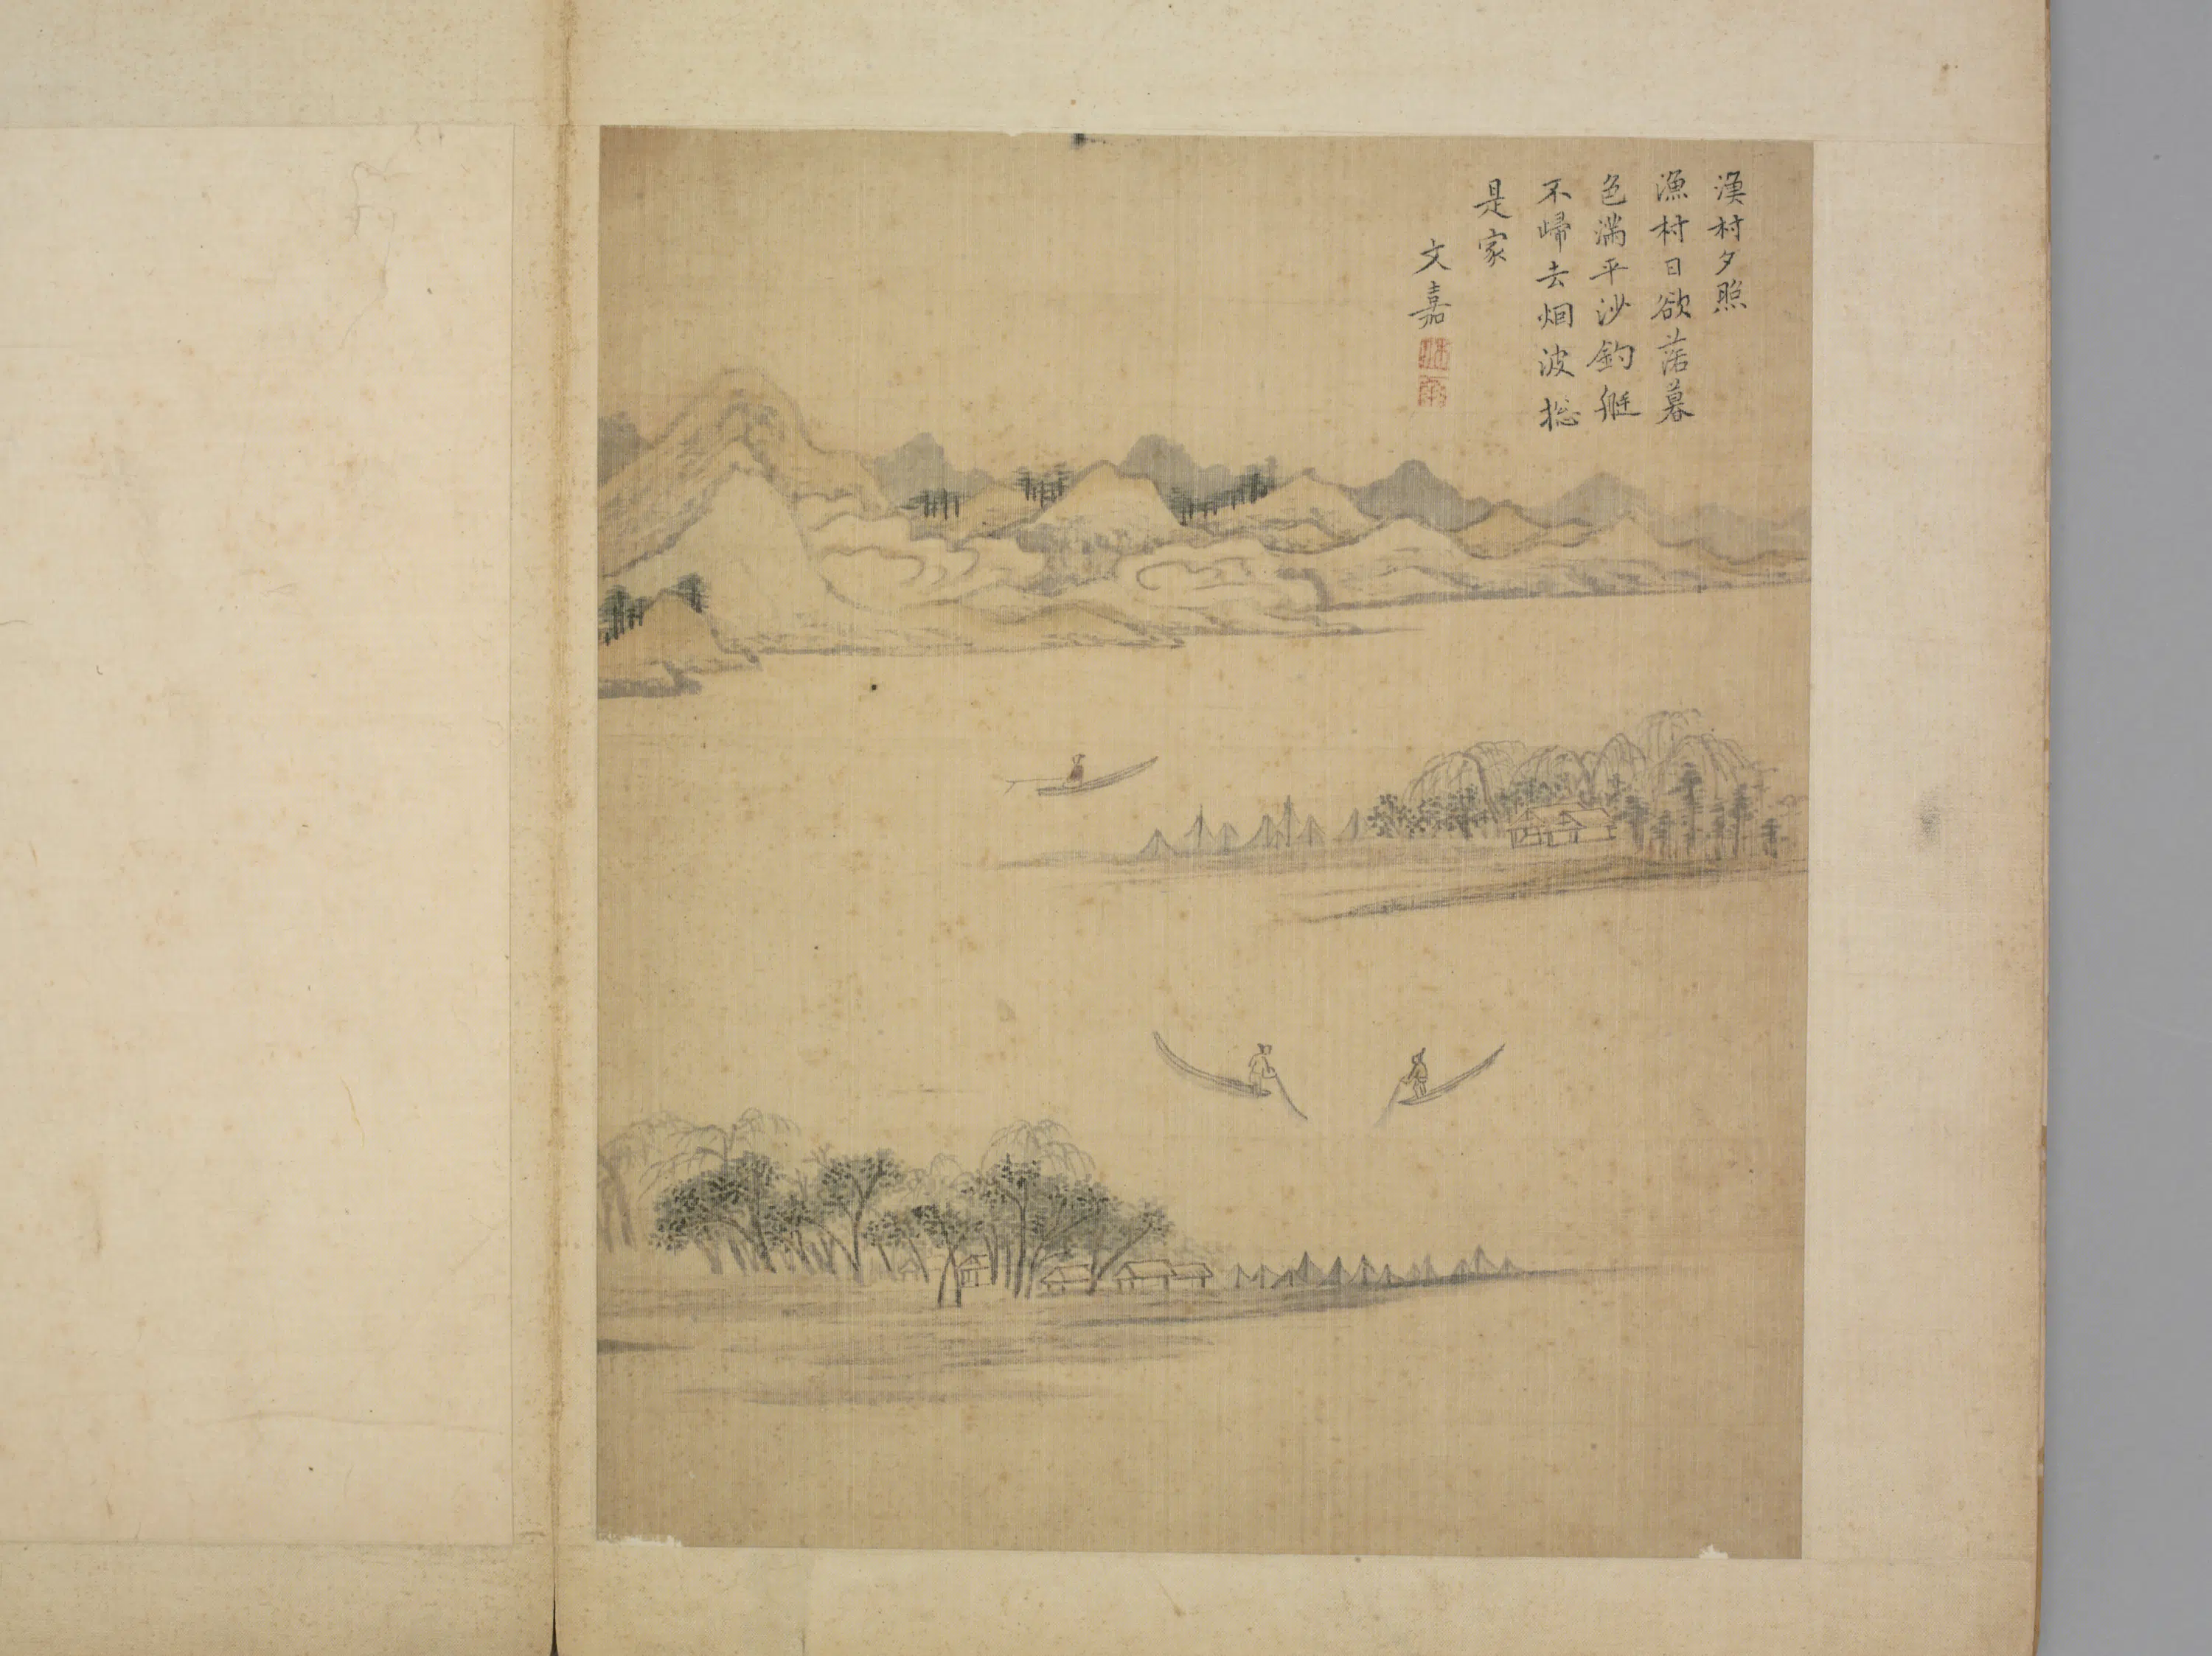 漁村夕照
漁村日欲落暮
色滿平沙釣艇
不歸去烟波捴
是家
文嘉